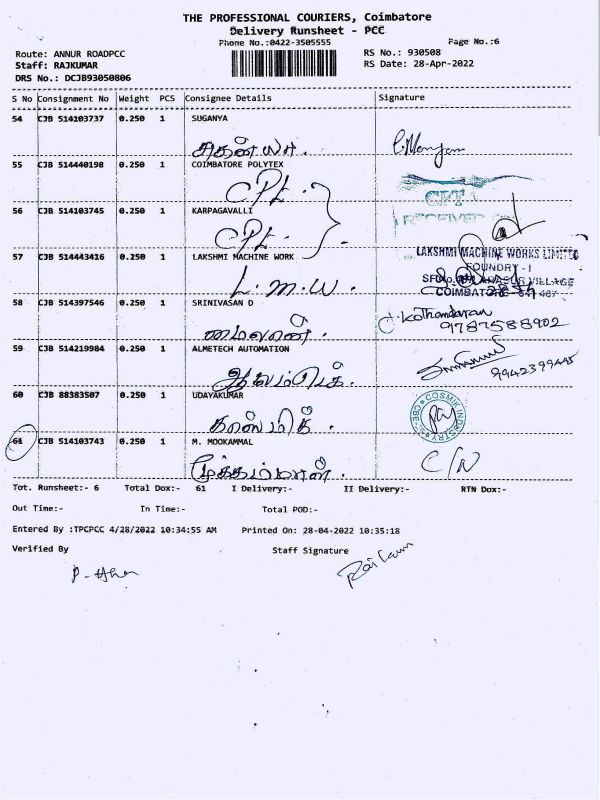 THE PROFESSIONAL COURIERS, Coimbatore
Delivery Runsheet - PCC
Phone No.:0422-3505555
Page No.:6
Route: ANNUR ROADPCC
RS No.: 930508
Staff: RAJKUMAR
RS Date: 28-Apr-2022
DRS No.: DCJB93050806
S No Consignment No Weight PCS Consignee Details Signature
54 CJB 514103737 0.250 1 SUGANYA
சுகன்யா.
55 CJB 514440198 0.250 1 COIMBATORE POLYTEX
CPL.
CPT
RECEIVED
56 CJB 514103745 0.250 1 KARPAGAVALLI
CPL.
57 CJB 514443416 0.250 1 LAKSHMI MACHINE WORK
LAKSHMI MACHINE WORKS LIMITED
FOUNDRY - I
L.M.W.
VILLAGE
COIMBATORE - 641 407
58 CJB 514397546 0.250 1 SRINIVASAN D
C. Kothandaran
9787588902
59 CJB 514219984 0.250 1 ALMETECH AUTOMATION
9942399445
60 CJB 88383507 0.250 1 UDAYAKUMAR
COSMIK INDUSTRY CBE
காஸ்மிக்.
61 CJB 514103743 0.250 1 M. MOOKAMMAL
C/N
Tot. Runsheet:- 6 Total Dox:- 61 I Delivery:- II Delivery:- RTN Dox:-
Out Time:- In Time:- Total POD:-
Entered By :TPCPCC 4/28/2022 10:34:55 AM Printed On: 28-04-2022 10:35:18
Verified By Staff Signature